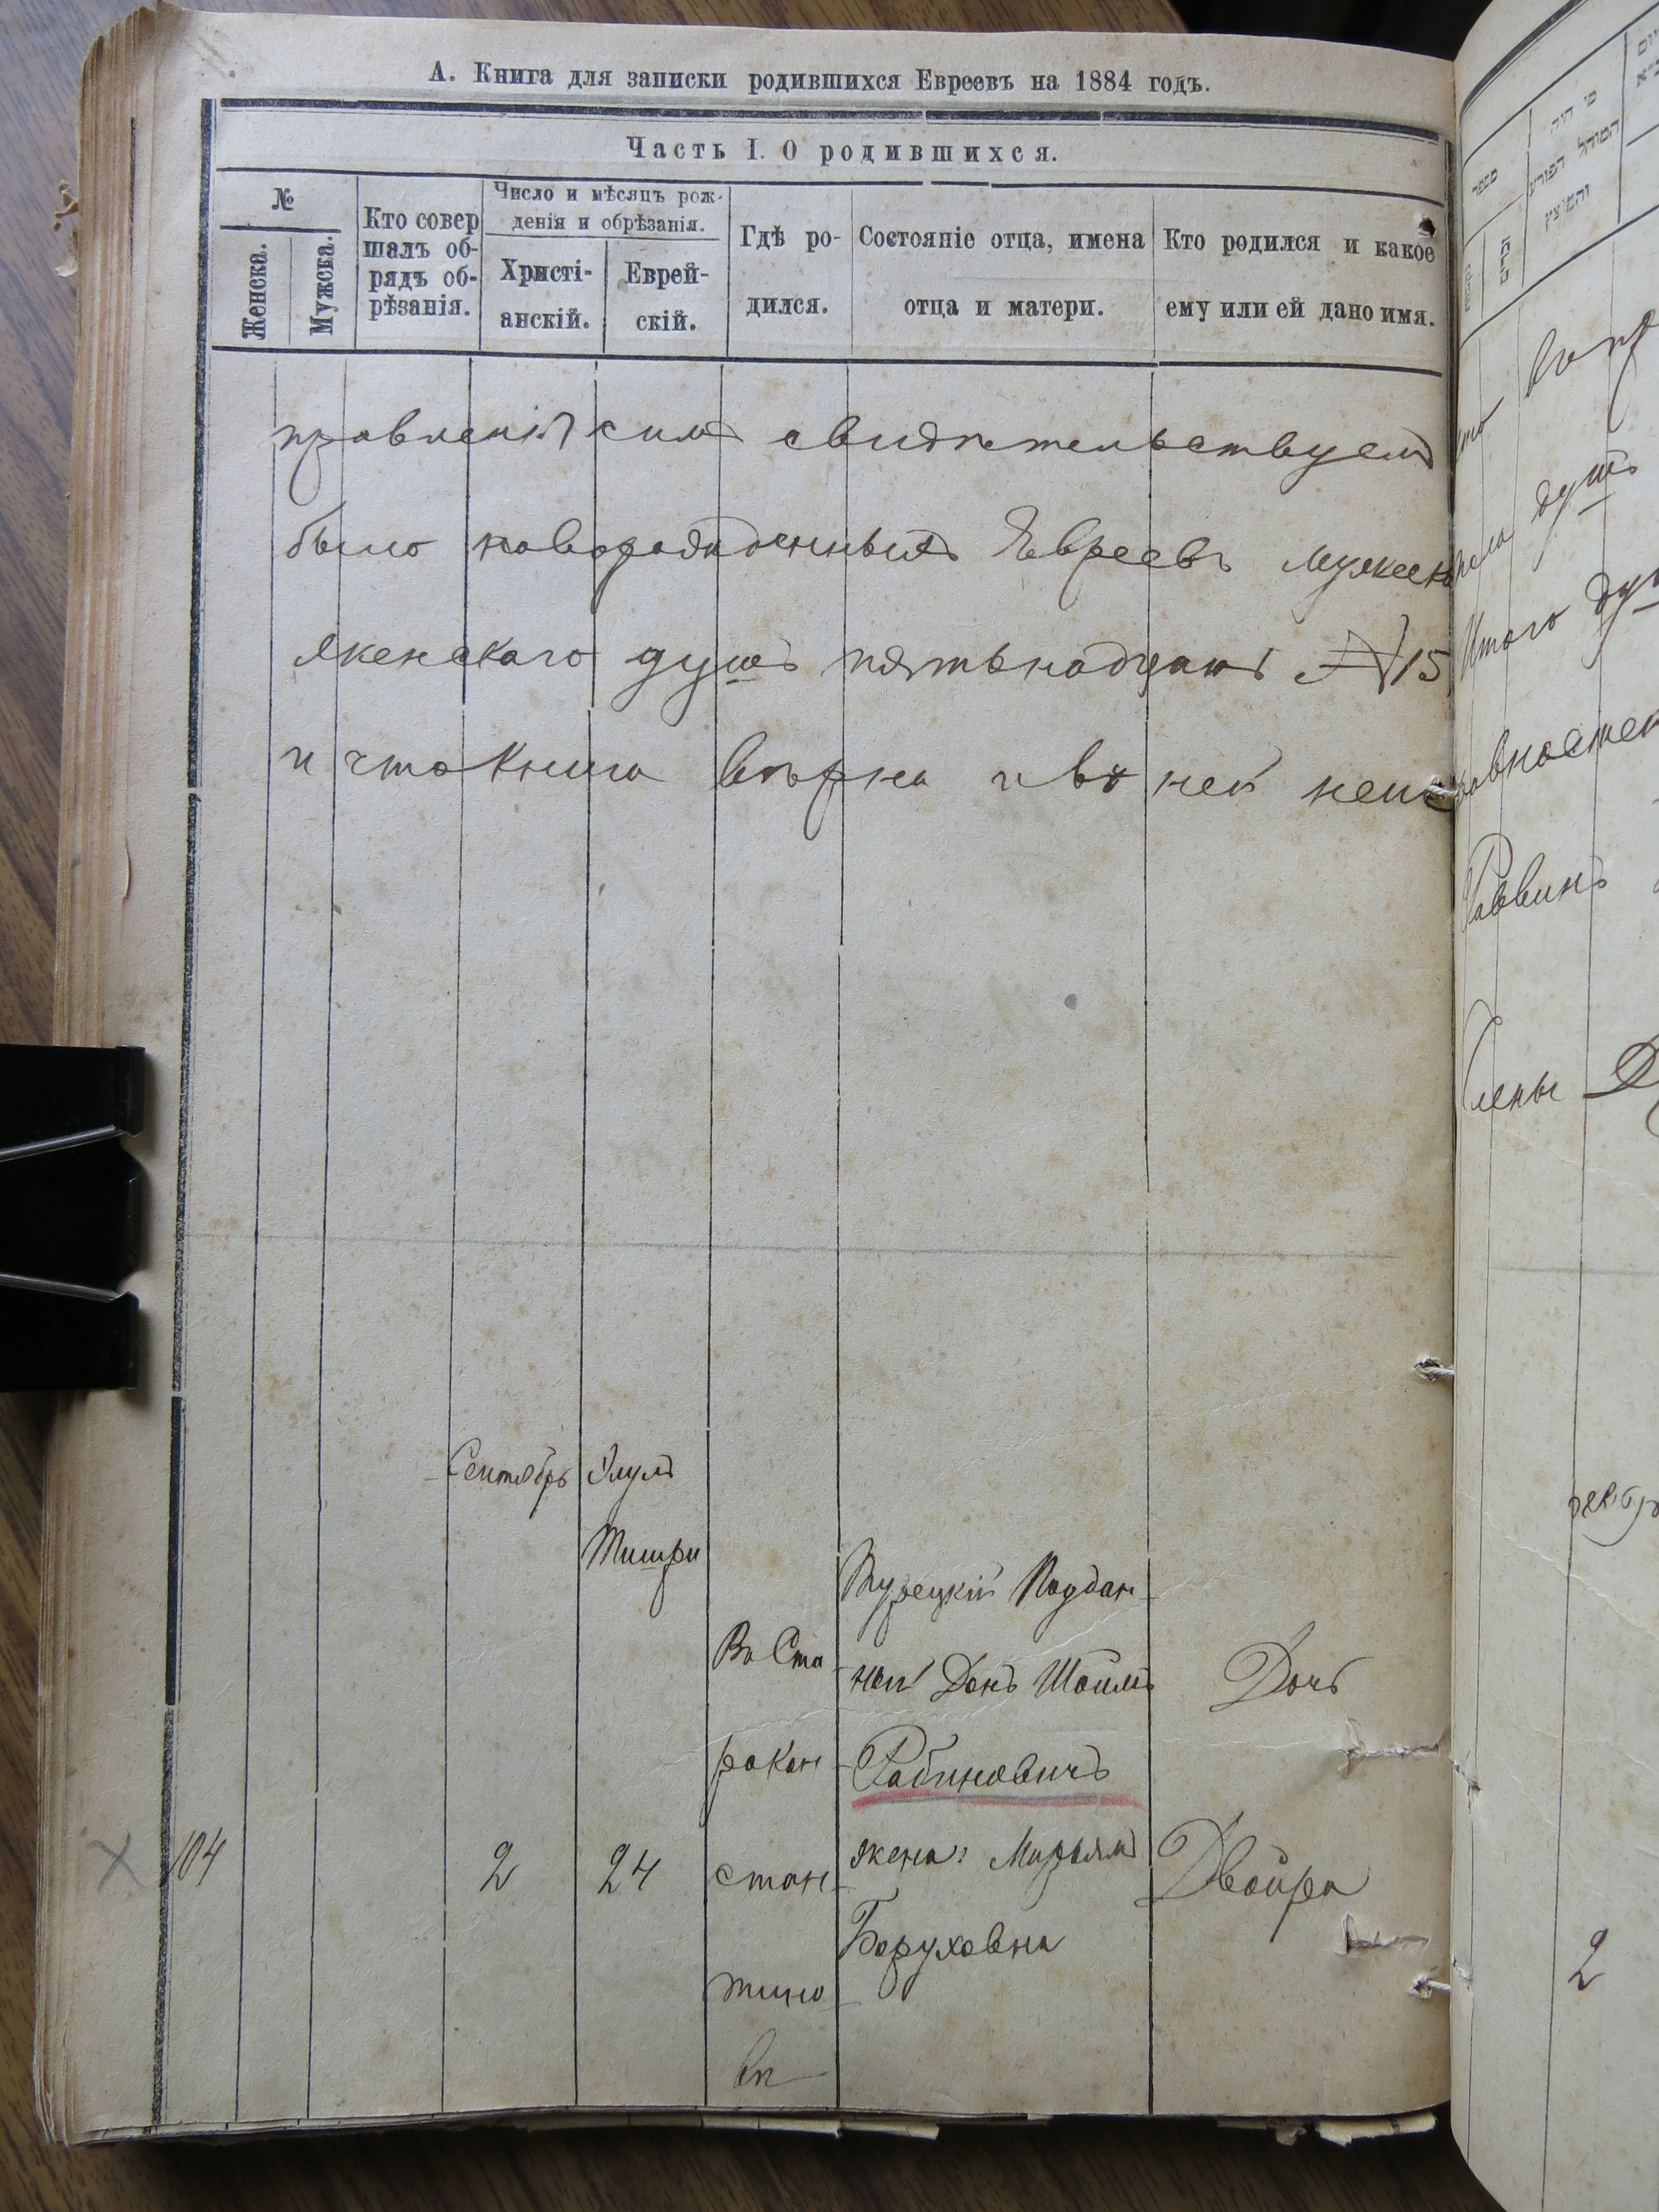 А. Книга для записки родившихся Евреевъ на 1884 годъ.
Часть I. О родившихся.
№
Женска.
Мужска.
Кто совер
шалъ об-
рядъ об-
рѣзанія.
Число и мѣсяцъ рож-
денія и обрѣзанія.
Христі-
анскій.
Еврей-
скій.
Гдѣ ро-
дился.
Состояніе отца, имена
отца и матери.
Кто родился и какое
ему или ей дано имя.
правленія симъ свидѣтельствуемъ
было новорожденныхъ Евреевъ мужска
женскаго душъ пятьнадцать №15
и что книга вѣрна и въ ней неис
Сентябрь Элулъ
Тишри
Въ Ста
рокон
стан
тино
вѣ
Турецкій Поддан
ный Донъ Шоилъ
Рабиновичъ
жена: Мирьямъ
Боруховна
Дочь
Двойра
104 2 24
душъ
Итого
равностей
Раввинъ
Члены
2